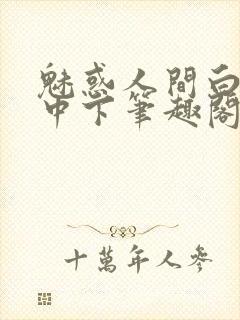 魅惑人間白
中下筆趣閣
十萬年人參